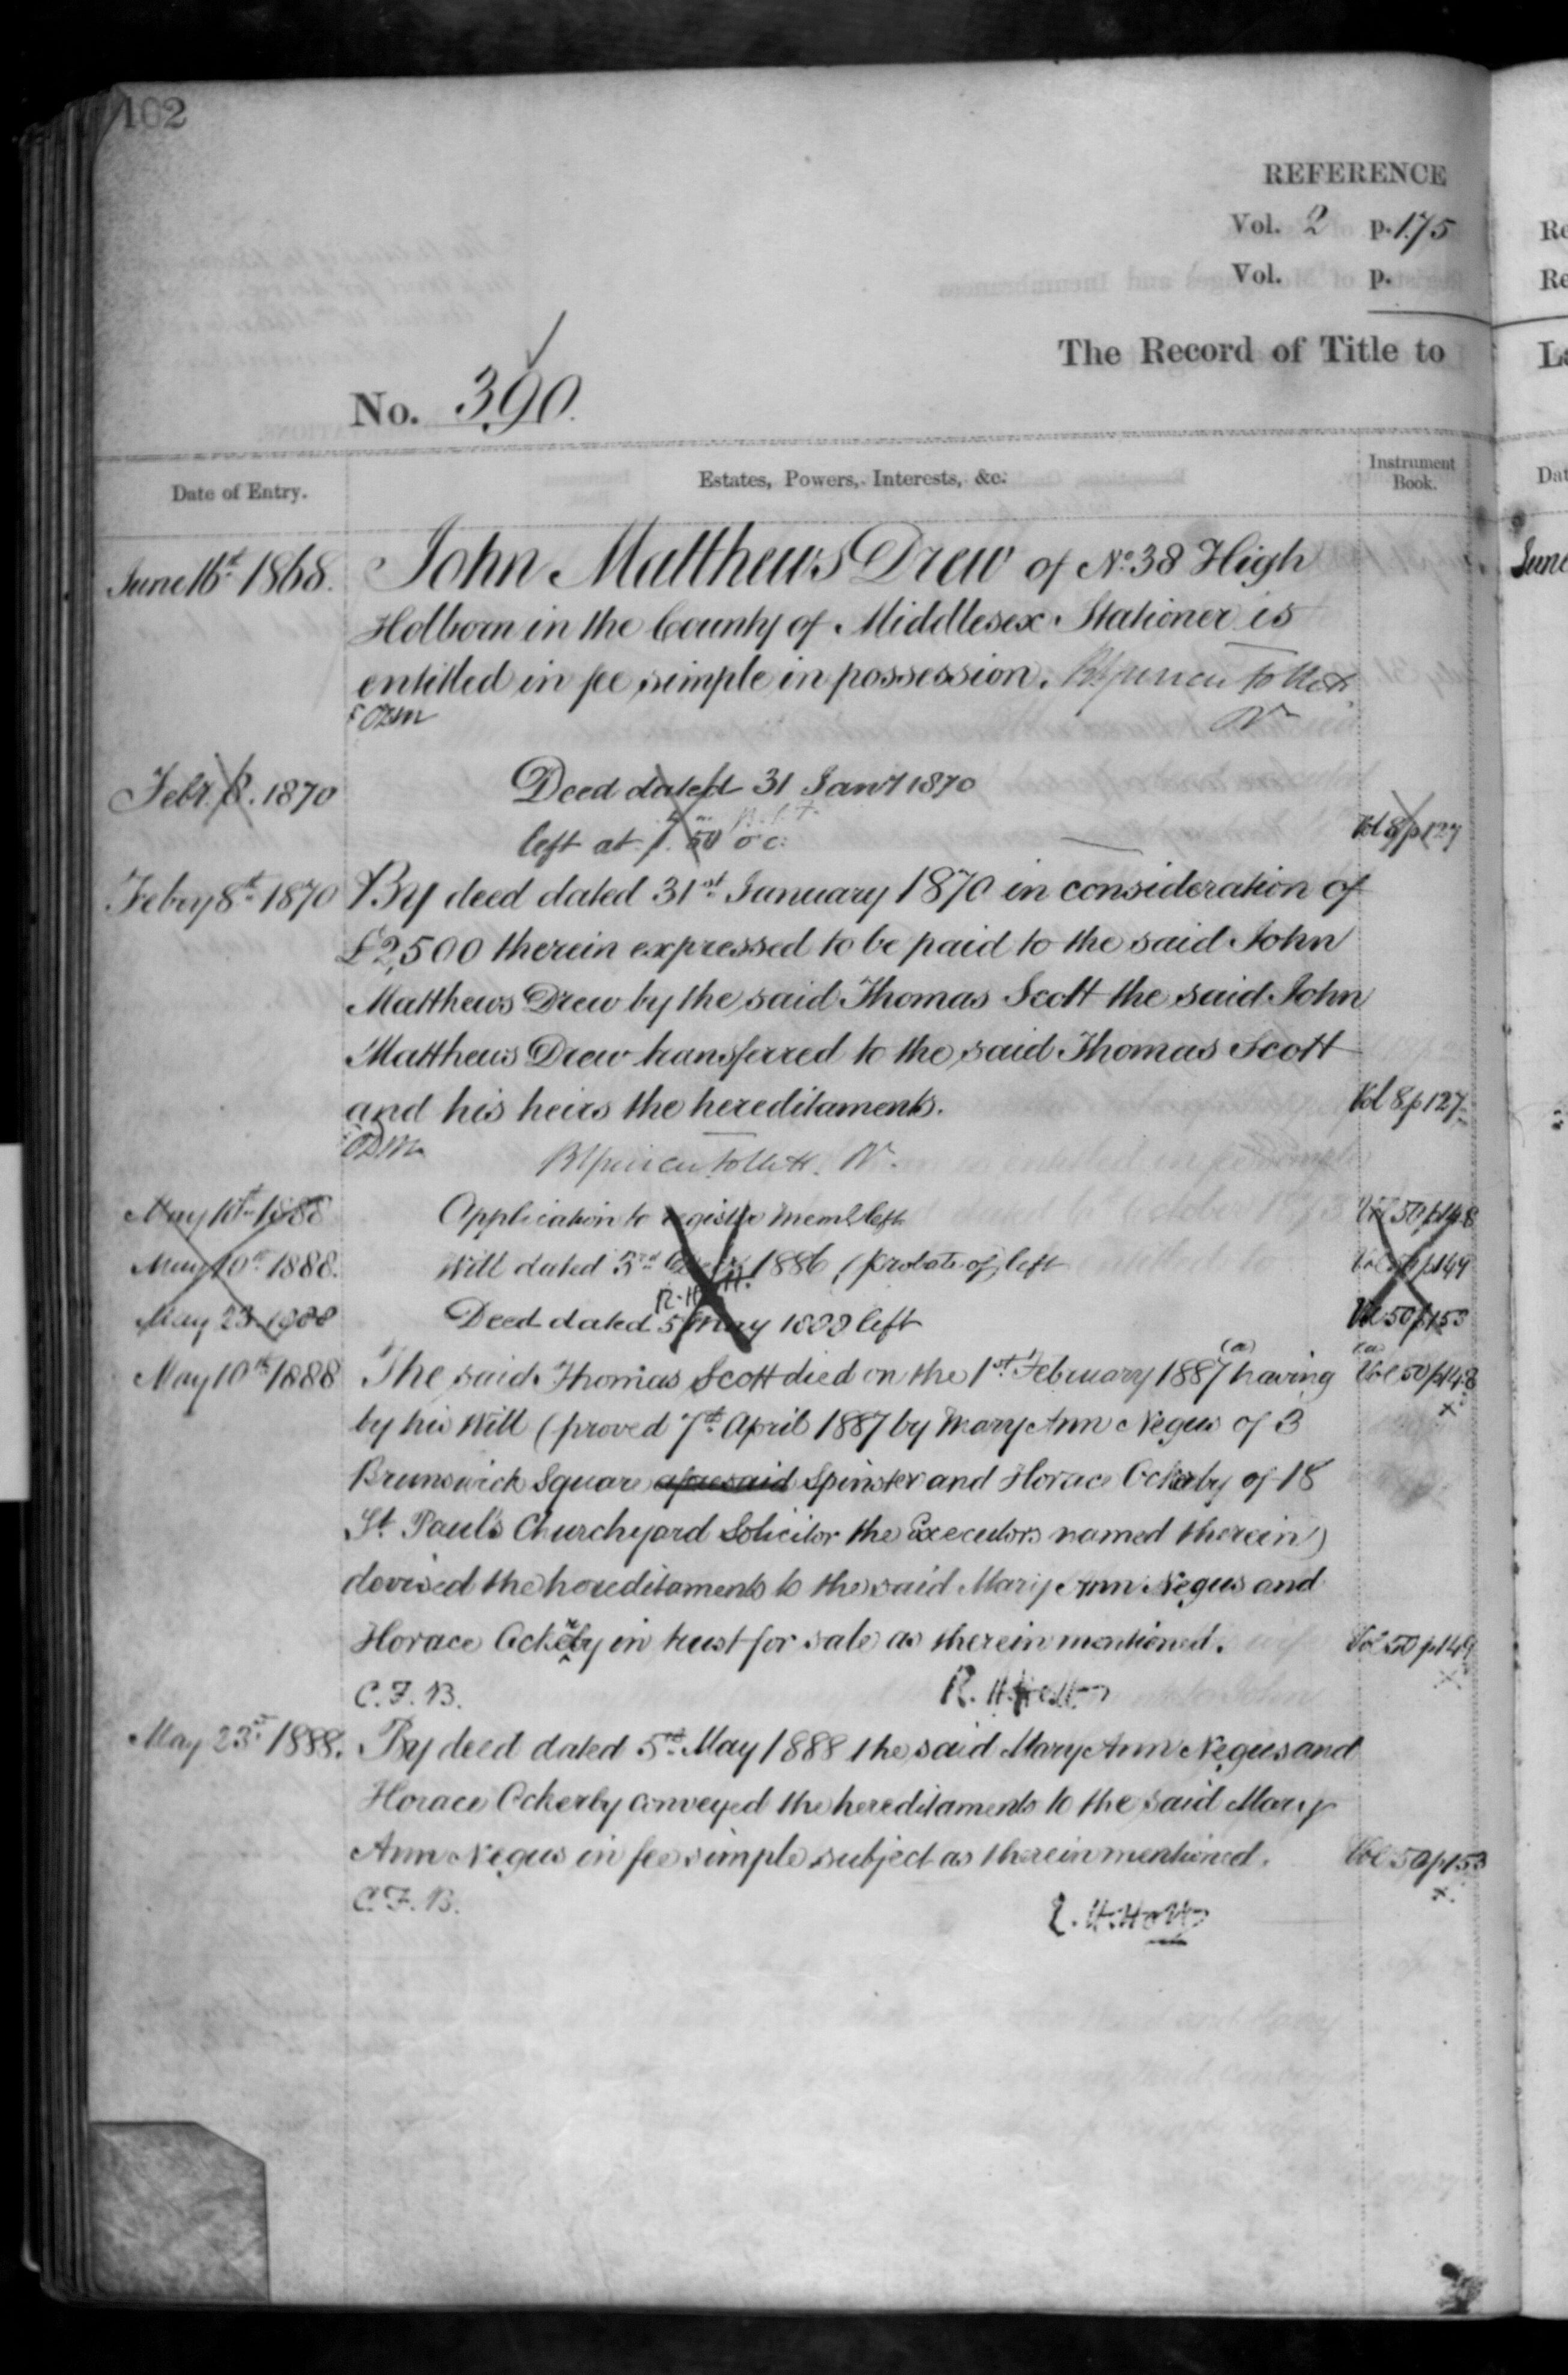 102
REFERENCE
Vol. 2 p. 175
Vol. p.
The Record of Title to
No. 390.
Date of Entry.
Estates, Powers, Interests, &c.
Instrument Book.
June 16th 1868. John Matthews Drew of No. 38 High
Holborn in the County of Middlesex Stationer is
entitled in fee simple in possession.
Febr. 8. 1870 Deed dated 31 Jany 1870
left at 1. 50 o c. Vol 8 p 127
Febry 8th 1870 By deed dated 31st January 1870 in consideration of
£2,500 therein expressed to be paid to the said John
Matthews Drew by the said Thomas Scott the said John
Matthews Drew transferred to the said Thomas Scott
and his heirs the hereditaments. Vol 8 p 127
May 10th 1888 Application to register Meml. left Vol 50 p 148
May 10th 1888. Will dated 3rd 1886 (probate of) left Vol 50 p 149
R.H.H.
May 23. 1888 Deed dated 5 May 1888 left Vol 50 p 153
May 10th 1888 The said Thomas Scott died on the 1st February 1887 (a) having (a) Vol 50 p 148
by his Will (proved 7th April 1887 by Mary Ann Negus of 3
Brunswick Square aforesaid Spinster and Horace Ockerby of 18
St. Paul's Churchyard Solicitor the Executors named therein)
devised the hereditaments to the said Mary Ann Negus and
Horace Ockerby in trust for sale as therein mentioned. Vol 50 p 149
C. F. B. R. H. Holt
May 23rd 1888. By deed dated 5th May 1888 the said Mary Ann Negus and
Horace Ockerby conveyed the hereditaments to the said Mary
Ann Negus in fee simple subject as therein mentioned. Vol 50 p 153
C. F. B. R. H. Holt